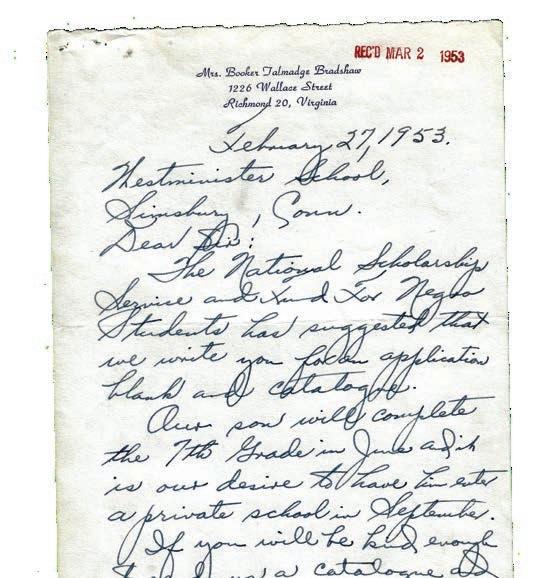 REC'D MAR 2 1953
Mrs. Booker Talmadge Bradshaw
1226 Wallace Street
Richmond 20, Virginia
February 27, 1953.
Westminister School,
Simsbury, Conn.
Dear Sir:
The National Scholarship
Service and Fund For Negro
Students has suggested that
we write you for an application
blank and catalogue.
Our son will complete
the 7th Grade in June and it
is our desire to have him enter
a private school in September.
If you will be kind enough
a catalogue